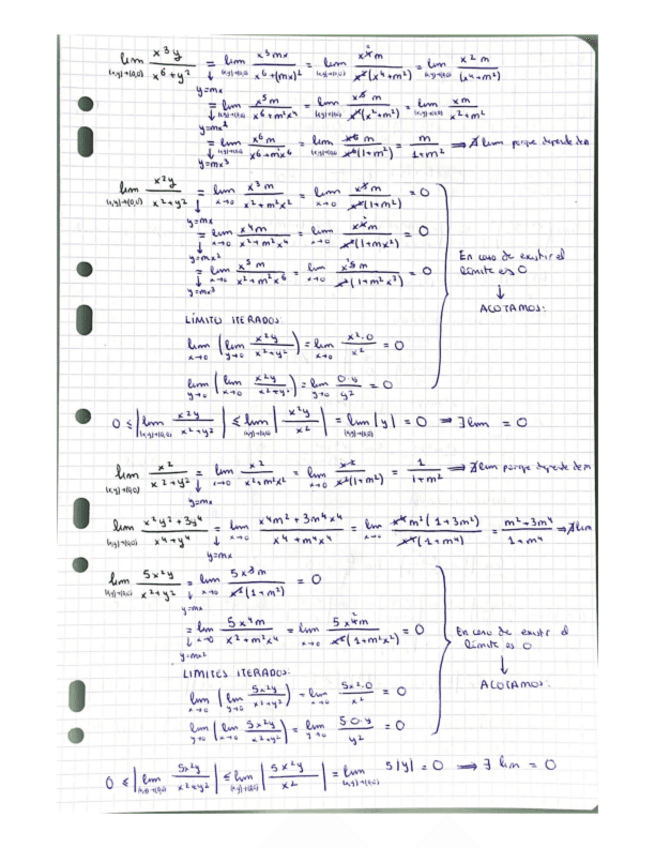 lim (x,y)→(0,0) x³y / x⁶+y² = lim (x,y)→(0,0) x³mx / x⁶+(mx)² = lim (x,y)→(0,0) x⁴m / x²(x⁴+m²) = lim (x,y)→(0,0) x²m / (x⁴+m²)
y=mx
= lim (x,y)→(0,0) x⁵m / x⁶+m²x⁴ = lim (x,y)→(0,0) x⁵m / x⁴(x²+m²) = lim (x,y)→(0,0) xm / x²+m²
y=mx²
= lim (x,y)→(0,0) x⁶m / x⁶+m²x⁶ = lim (x,y)→(0,0) x⁶m / x⁶(1+m²) = m / 1+m² ⟹ ∄ lim porque depende de m
y=mx³
lim (x,y)→(0,0) x²y / x²+y² = lim x→0 x³m / x²+m²x² = lim x→0 x³m / x²(1+m²) = 0
y=mx
= lim x→0 x⁴m / x²+m²x⁴ = lim x→0 x⁴m / x²(1+mx²) = 0
y=mx²
= lim x→0 x⁵m / x²+m²x⁶ = lim x→0 x⁵m / x²(1+m²x³) = 0
y=mx³
En caso de existir el
límite es 0
↓
ACOTAMOS:
LÍMITES ITERADOS:
lim x→0 (lim y→0 x²y / x²+y²) = lim x→0 x²·0 / x² = 0
lim y→0 (lim x→0 x²y / x²+y²) = lim y→0 0·y / y² = 0
0 ≤ |lim (x,y)→(0,0) x²y / x²+y²| ≤ lim (x,y)→(0,0) |x²y / x²| = lim (x,y)→(0,0) |y| = 0 ⟹ ∃ lim = 0
lim (x,y)→(0,0) x² / x²+y² = lim x→0 x² / x²+m²x² = lim x→0 x² / x²(1+m²) = 1 / 1+m² ⟹ ∄ lim porque depende de m
y=mx
lim (x,y)→(0,0) x²y²+3y⁴ / x⁴+y⁴ = lim x→0 x⁴m²+3m⁴x⁴ / x⁴+m⁴x⁴ = lim x→0 x⁴m²(1+3m²) / x⁴(1+m⁴) = m²+3m⁴ / 1+m⁴ ⟹ ∄ lim
y=mx
lim (x,y)→(0,0) 5x²y / x²+y² = lim x→0 5x³m / x²(1+m²) = 0
y=mx
= lim x→0 5x⁴m / x²+m²x⁴ = lim x→0 5x⁴m / x²(1+m²x²) = 0
y=mx²
En caso de existir el
límite es 0
↓
ACOTAMOS:
LIMITES ITERADOS:
lim x→0 (lim y→0 5x²y / x²+y²) = lim x→0 5x²·0 / x² = 0
lim y→0 (lim x→0 5x²y / x²+y²) = lim y→0 5·0·y / y² = 0
0 ≤ |lim (x,y)→(0,0) 5x²y / x²+y²| ≤ lim (x,y)→(0,0) |5x²y / x²| = lim (x,y)→(0,0) 5|y| = 0 ⟹ ∃ lim = 0